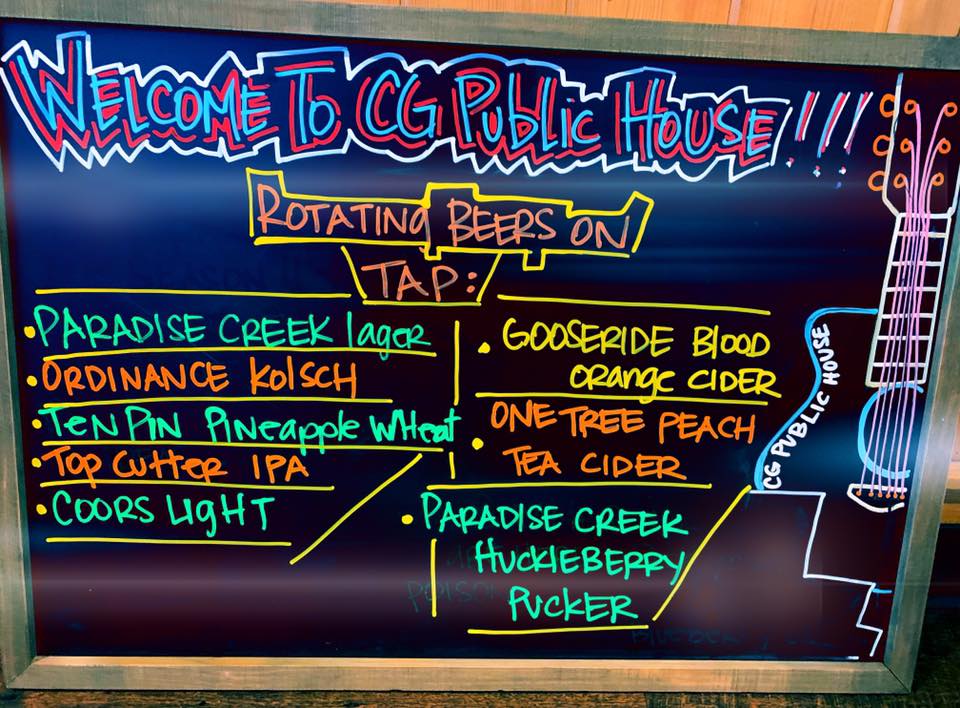 WELCOME TO CG PUBLIC HOUSE!!!
ROTATING BEERS ON
TAP:
• PARADISE CREEK lager
• ORDINANCE KOlSCH
• TEN PIN PINeapple WHeat
• TOP CUTTER IPA
• COORS LIGHT
• GOOSERIDE BlOOD
ORANGE CIDER
• ONE TREE PEACH
TEA CIDER
• PARADISE CREEK
HUCKLEBERRY
PUCKER
CG PUBLIC HOUSE